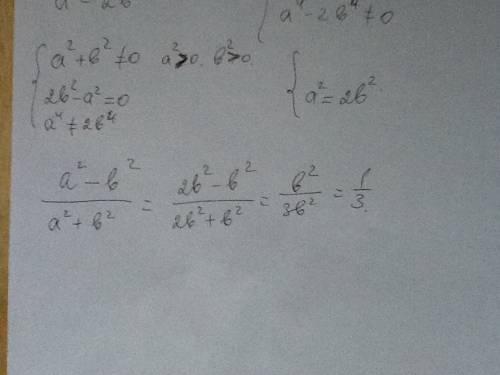 a⁴ - 2b⁴
a⁴ - 2b⁴ ≠ 0
a² + b² ≠ 0 a² > 0. b² > 0.
2b² - a² = 0
a⁴ ≠ 2b⁴
a² = 2b²
(a² - b²)/(a² + b²) = (2b² - b²)/(2b² + b²) = b²/3b² = 1/3.